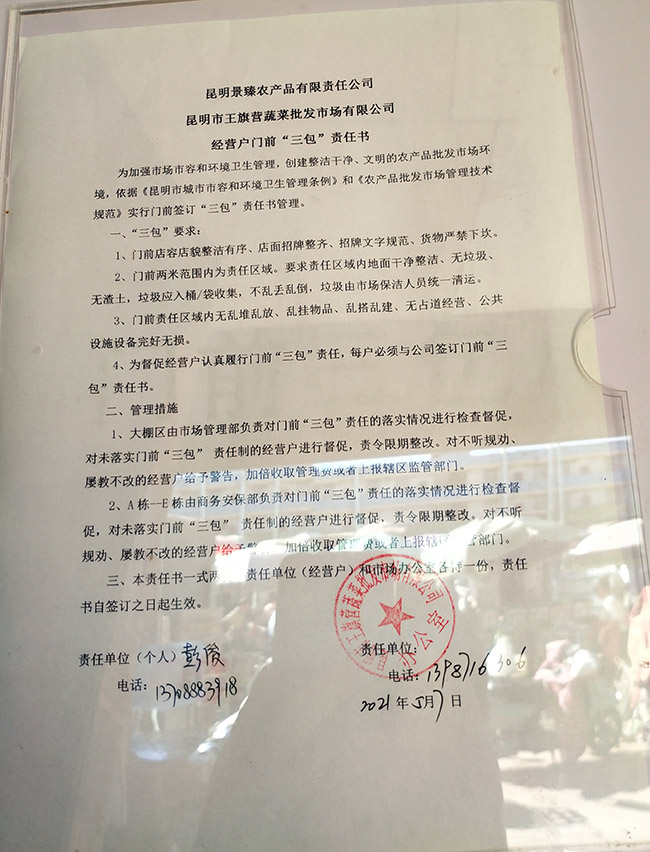 昆明景臻农产品有限责任公司
昆明市王旗营蔬菜批发市场有限公司
经营户门前“三包”责任书
为加强市场市容和环境卫生管理，创建整洁干净、文明的农产品批发市场环
境，依据《昆明市城市市容和环境卫生管理条例》和《农产品批发市场管理技术
规范》实行门前签订“三包”责任书管理。
一、“三包”要求：
1、门前店容店貌整洁有序、店面招牌整齐、招牌文字规范、货物严禁下坎。
2、门前两米范围内为责任区域。要求责任区域内地面干净整洁、无垃圾、
无渣土，垃圾应入桶/袋收集，不乱丢乱倒，垃圾由市场保洁人员统一清运。
3、门前责任区域内无乱堆乱放、乱挂物品、乱搭乱建、无占道经营、公共
设施设备完好无损。
4、为督促经营户认真履行门前“三包”责任，每户必须与公司签订门前“三
包”责任书。
二、管理措施
1、大棚区由市场管理部负责对门前“三包”责任的落实情况进行检查督促，
对未落实门前“三包” 责任制的经营户进行督促，责令限期整改。对不听规劝、
屡教不改的经营户给予警告，加倍收取管理费或者上报辖区监管部门。
2、A 栋--E 栋由商务安保部负责对门前“三包”责任的落实情况进行检查督
促，对未落实门前“三包” 责任制的经营户进行督促，责令限期整改。对不听
规劝、屡教不改的经营户给予警告，加倍收取管理费或者上报辖区监管部门。
三、本责任书一式两 责任单位（经营户）和市场办公室各 一份，责任
书自签订之日起生效。
责任单位（个人）彭俊
责任单位：
电话：13708883918
电话：1398716 306
2021年5月7日
王旗营蔬菜批发市场有限公司
办公室